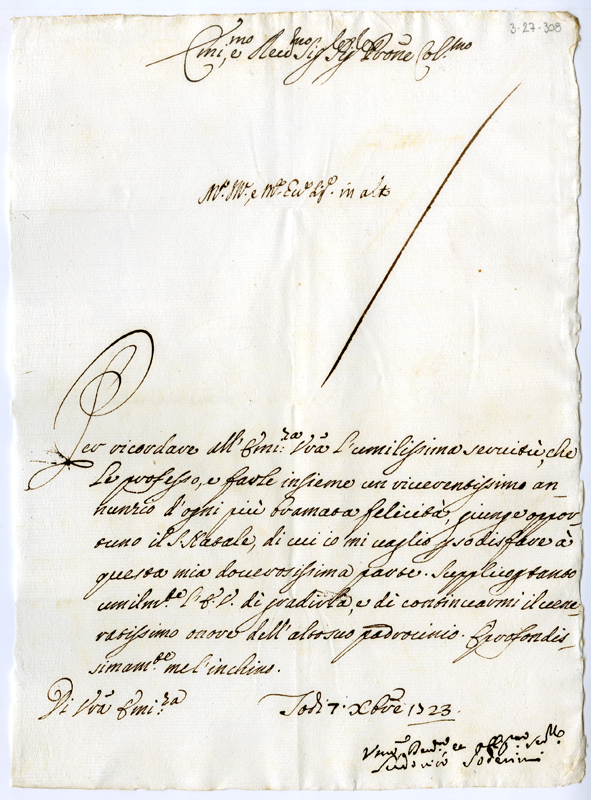 3-27-308
Emi.mo e Reu.mo Sig. Sig. Prone Col.mo
in alto
Per ricordare all'Emi:za Vra l'umilissima servitù, che
Le professo, e farle insieme un riverentissimo an=
nunzio d'ogni più bramata felicità, giunge oppor=
tuno il S. Natale, di cui io mi vaglio p sodisfare à
questa mia doverosissima parte. Supplico ptanto
umilmte l'E. V. di gradirla, e di continuarmi il vene=
ratissimo onore dell'alto suo padrocinio. E profondis=
simamte me l'inchino.
Di Vra Emi:za Todi 7. Xbre 1723.
Vmo Devmo et Obbmo
Ludovico Soderini